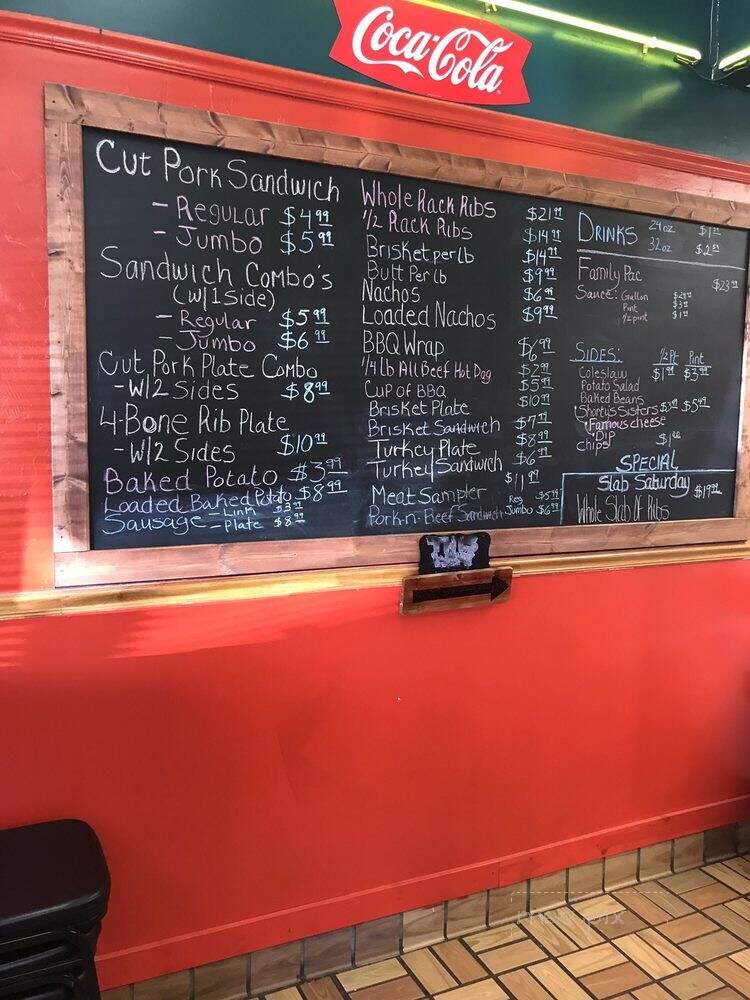 Coca-Cola
Cut Pork Sandwich
- Regular $4.99
- Jumbo $5.99
Sandwich Combo's
(w/1 Side)
- Regular $5.99
- Jumbo $6.99
Cut Pork Plate Combo
- W/2 Sides $8.99
4-Bone Rib Plate
- W/2 Sides $10.99
Baked Potato $3.99
Loaded Baked Potato $8.99
Sausage - Link $3.99
- Plate $8.99
Whole Rack Ribs $21.99
1/2 Rack Ribs $14.99
Brisket per lb $14.99
Butt Per lb $9.99
Nachos $6.99
Loaded Nachos $9.99
BBQ Wrap $6.99
1/4 lb All Beef Hot Dog $2.99
Cup of BBQ $5.99
Brisket Plate $10.99
Brisket Sandwich $7.99
Turkey Plate $8.99
Turkey Sandwich $6.99
Meat Sampler $11.99
Pork-n-Beef Sandwich Reg $5.99
Jumbo $6.99
Drinks 24 oz
32 oz
Family Pac $23.99
Sauce: Gallon
Pint
1/2 pint
SIDES: 1/2 Pt Pint
Coleslaw $1.99 $3.99
Potato Salad
Baked Beans
Shorty's Sisters $3.49 $5.49
Famous cheese
Dip
Chips
SPECIAL
Slab Saturday $19.99
Whole Slab Of Ribs